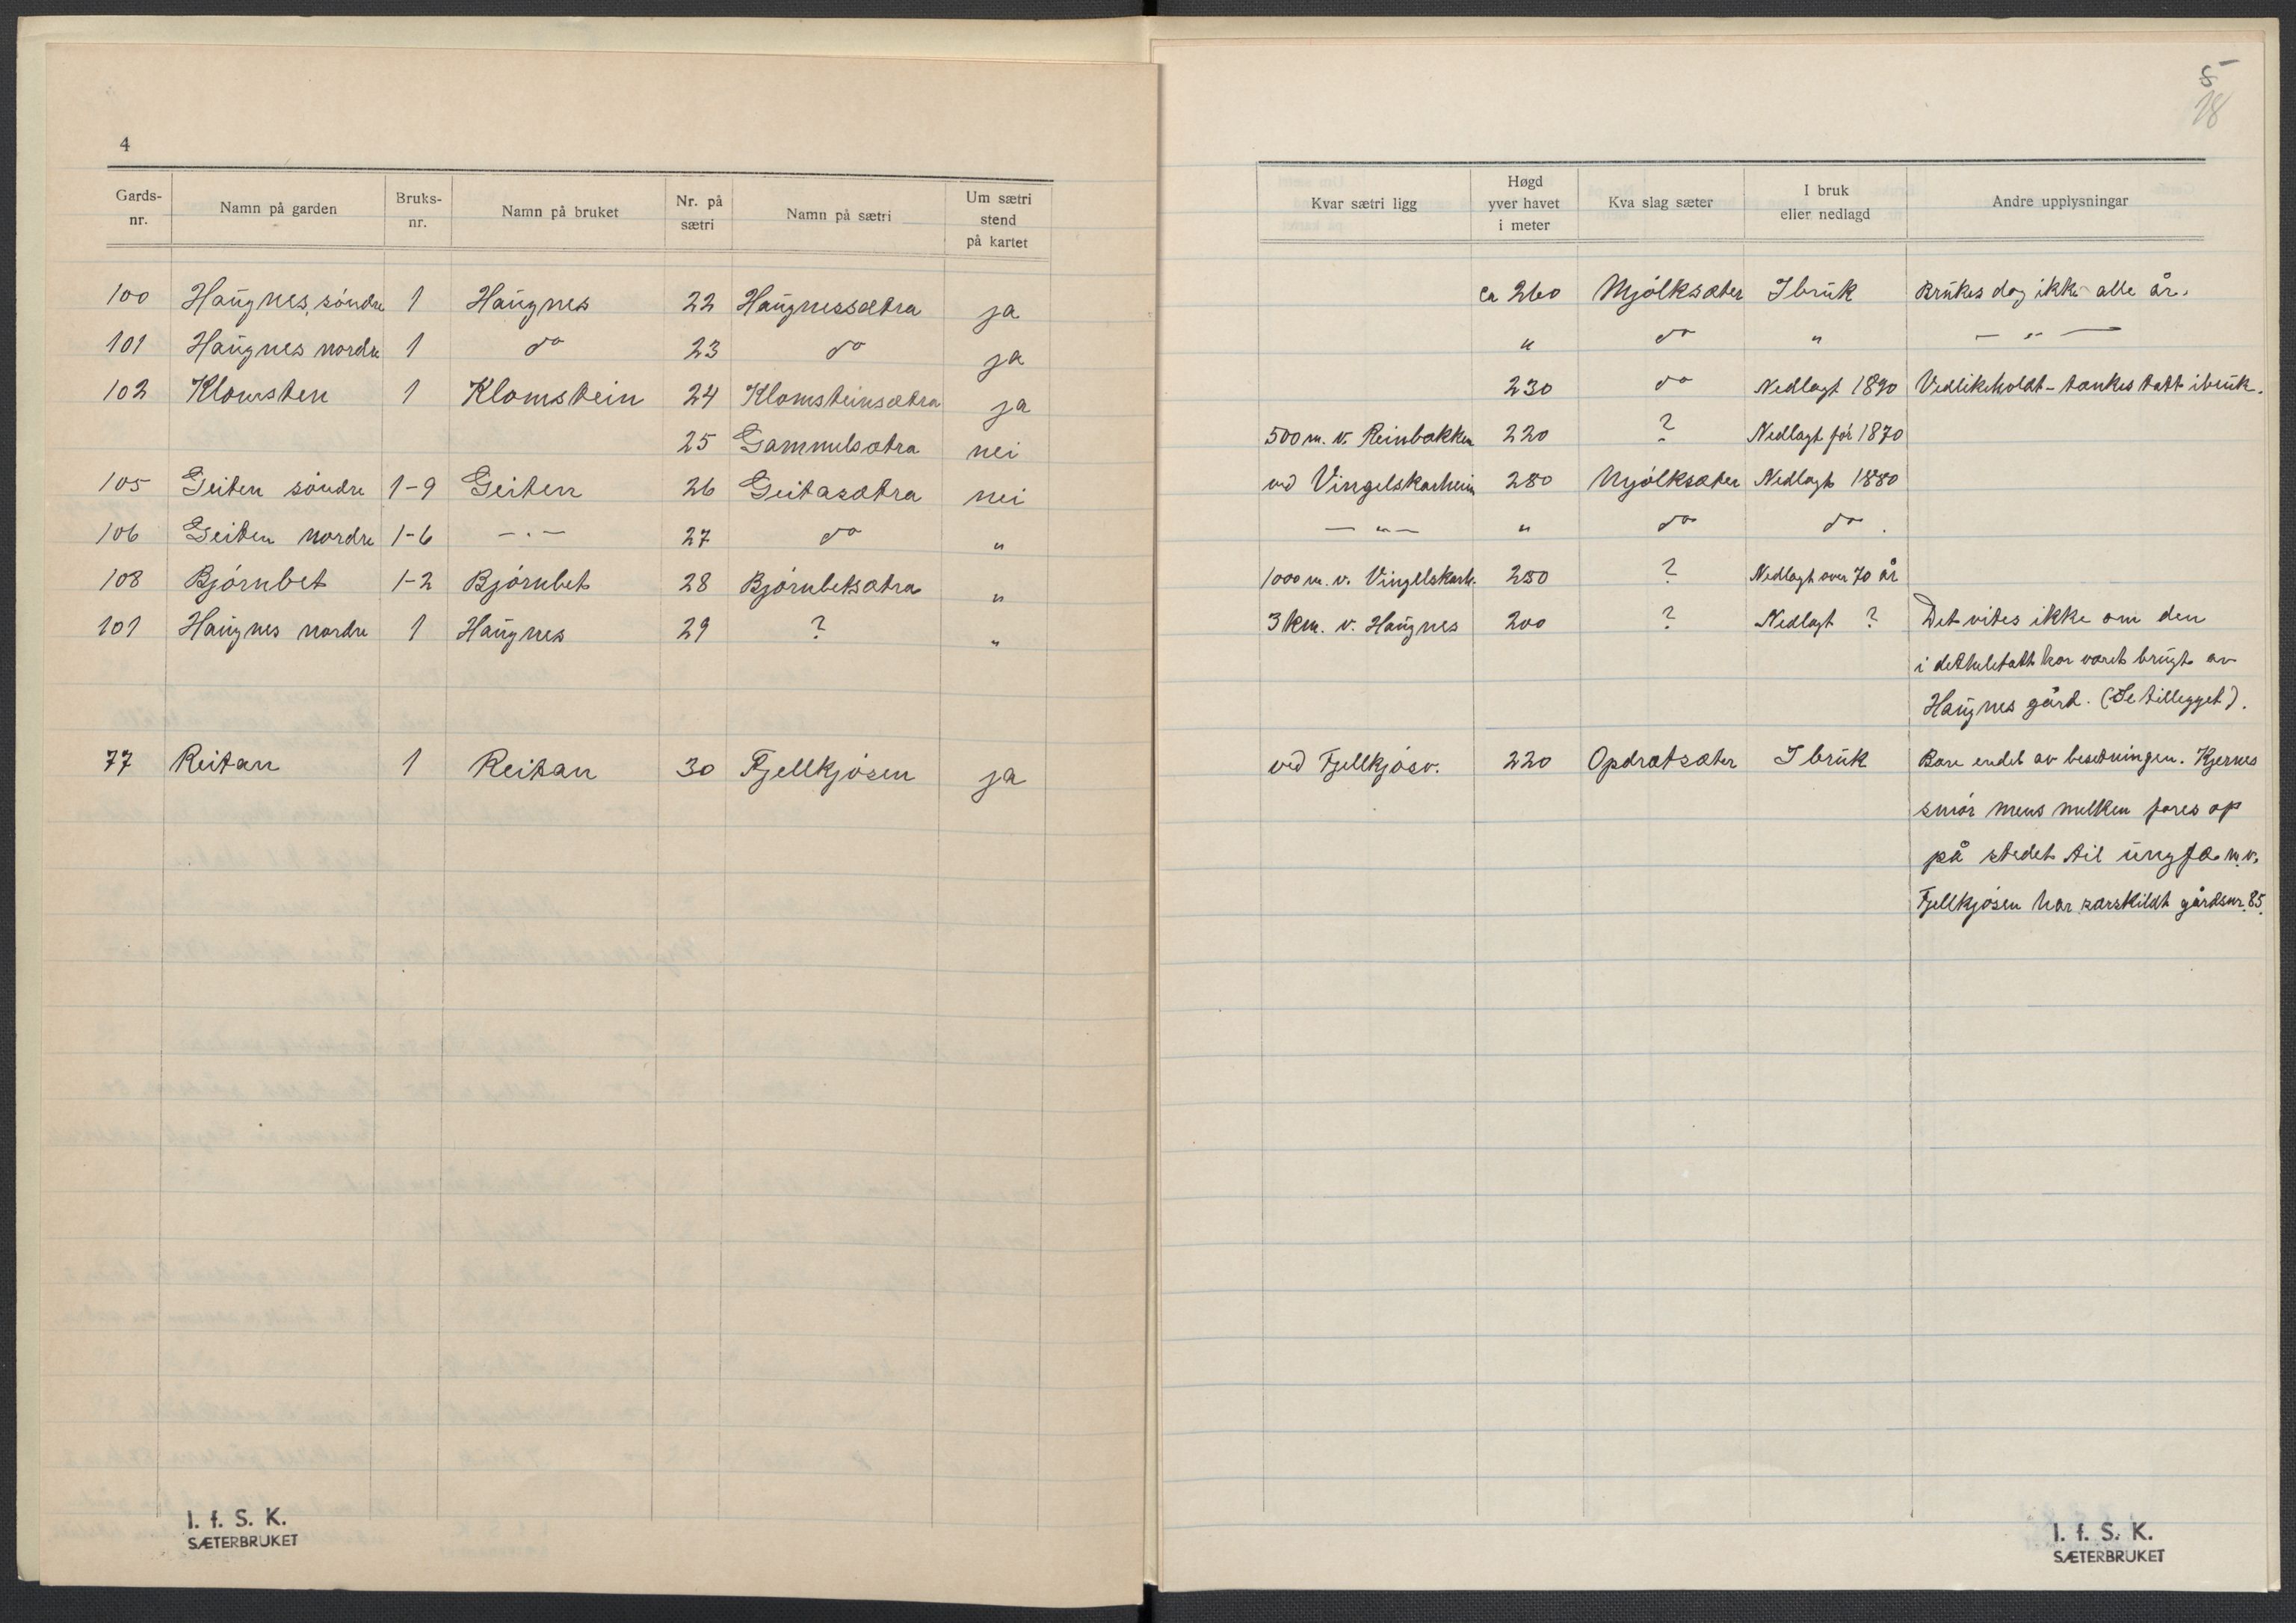 4
Gards-nr. Namn på garden Bruks-nr. Namn på bruket Nr. på sætri Namn på sætri Um sætri stend på kartet
100 Haugnes, söndre 1 Haugnes 22 Haugnessætra ja
101 Haugnes nordre 1 do 23 do ja
102 Klomsten 1 Klomstein 24 Klomsteinsætra ja
25 Gammelsætra nei
105 Geiten söndre 1-9 Geiten 26 Geitasætra nei
106 Geiten nordre 1-6 — . — 27 do "
108 Björnbet 1-2 Björnbet 28 Björnbetsætra "
101 Haugnes nordre 1 Haugnes 29 ? "
77 Reitan 1 Reitan 30 Fjellkjösen ja
I. f. S. K.
SÆTERBRUKET
5
18
Kvar sætri ligg Høgd yver havet i meter Kva slag sæter I bruk eller nedlagd Andre upplysningar
ca 260 Mjölksæter I bruk Brukes dog ikke alle år.
" do " — " —
230 do Nedlagt 1890 Vedlikeholdt - tænkes tatt i bruk.
500 m. v. Reinbakken 220 ? Nedlagt för 1870
ved Vingelskarheim 280 Mjölksæter Nedlagt 1880
— " — " do do.
1000 m. v. Vingelskarh. 280 ? Nedlagt over 70 år
3 km. v. Haugnes 200 ? Nedlagt ? Det vites ikke om den
i det hele tatt har været brugt av
Haugnes gård. (Se tillegget).
ved Fjellkjösv. 220 Opdrætsæter I bruk Bare endel av besetningen. Kjernes
smör mens melken fores op
på stedet til ungfæ m.v.
Fjellkjösen har særskildt gårdsnr. 85.
I. f. S. K.
SÆTERBRUKET